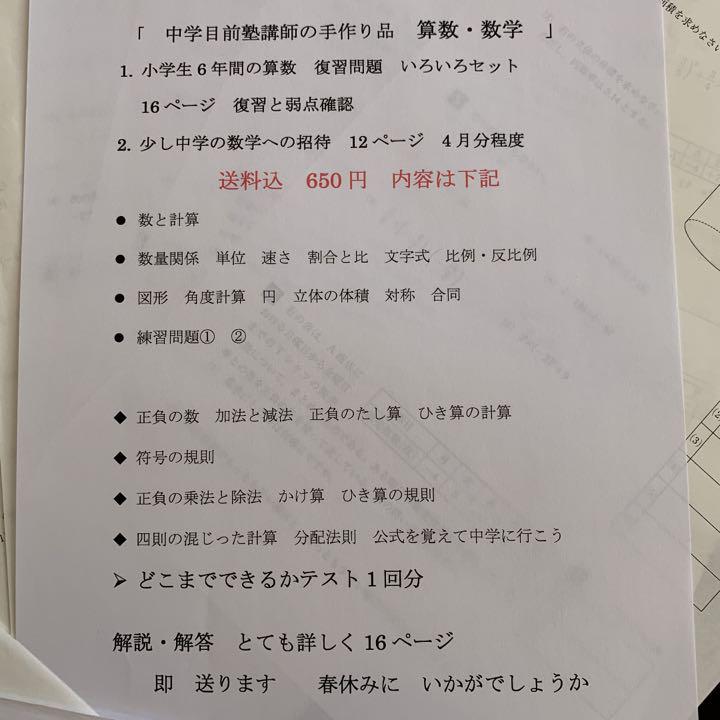 「　中学目前塾講師の手作り品　算数・数学　」
1. 小学生６年間の算数　復習問題　いろいろセット
16ページ　復習と弱点確認
2. 少し中学の数学への招待　12ページ　４月分程度
送料込　650円　内容は下記
● 数と計算
● 数量関係　単位　速さ　割合と比　文字式　比例・反比例
● 図形　角度計算　円　立体の体積　対称　合同
● 練習問題①　②
◆ 正負の数　加法と減法　正負のたし算　ひき算の計算
◆ 符号の規則
◆ 正負の乗法と除法　かけ算　ひき算の規則
◆ 四則の混じった計算　分配法則　公式を覚えて中学に行こう
➢ どこまでできるかテスト１回分
解説・解答　とても詳しく16ページ
即　送ります　　春休みに　いかがでしょうか
積を求めなさい
(3)